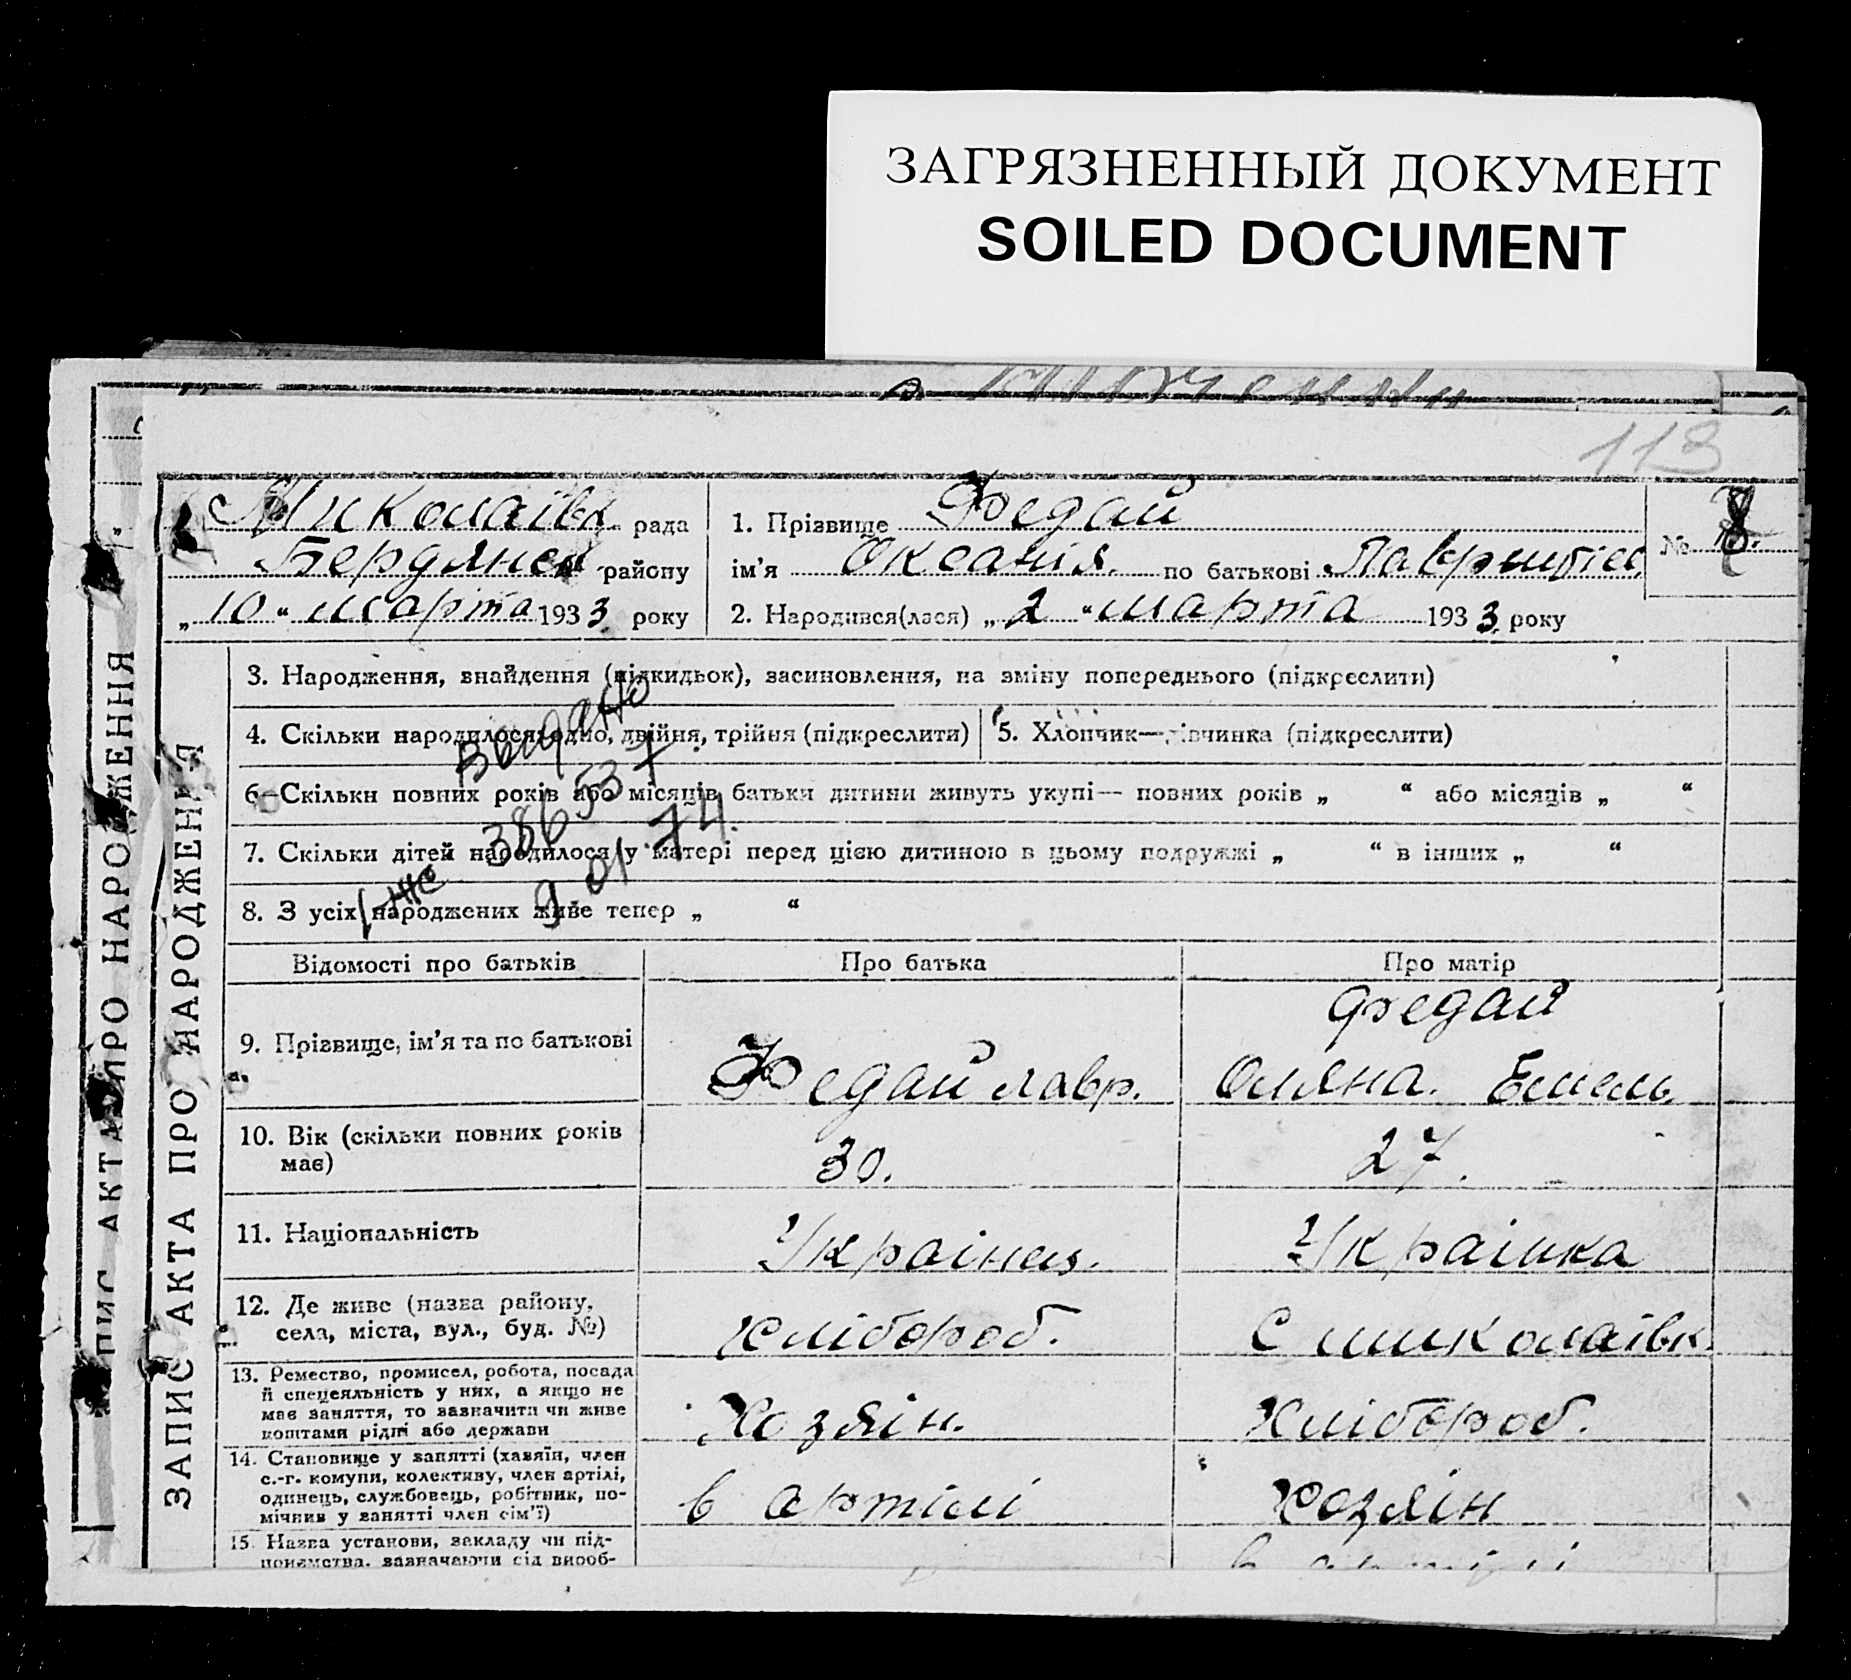 ЗАГРЯЗНЕННЫЙ ДОКУМЕНТ
SOILED DOCUMENT
113
ЗАПИС АКТА ПРО НАРОДЖЕННЯ
Миколаївк. рада
Бердянськ району
„10“ марта 1933 року
1. Прізвище Федай
ім’я Океанія. по батькові Лаврентіїв.
2. Народився(лася) „2“ марта 1933 року
№ 8
3. Народження, знайдення (підкидьок), засиновлення, на зміну попереднього (підкреслити)
4. Скільки народилося: одно, двійня, трійня (підкреслити)
5. Хлопчик—дівчинка (підкреслити)
6. Скільки повних років або місяців батьки дитини живуть укупі— повних років „ “ або місяців „ “
7. Скільки дітей народилося у матері перед цією дитиною в цьому подружжі „ “ в інших „ “
8. З усіх народжених живе тепер „ “
Выдано
386537
9 01.74.
Відомості про батьків
Про батька
Про матір
9. Прізвище, ім’я та по батькові
Федай Лавр.
Федай
Оляна. Емель.
10. Вік (скільки повних років
має)
30.
27.
11. Національність
Українец.
Українка
12. Де живе (назва району,
села, міста, вул., буд. №)
Хлібороб.
С Миколаївк.
13. Ремество, промисел, робота, посада
й спецеяльність у них, а якщо не
має заняття, то зазначити чи живе
коштами рідні або держави
Хозяїн.
Хлібороб.
14. Становище у занятті (хазяїн, член
с.-г. комуни, колективу, член артілі,
одинець, службовець, робітник, по-
мічник у занятті член сім’ї)
в артілі
Хозяїн
15. Назва установи, закладу чи під-
приємства, зазначаючи під вироб-
в артілі